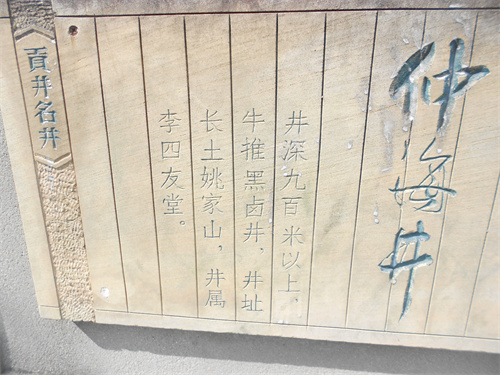 仲海井
井深九百米以上，
牛推黑卤井，井址
长土姚家山，井属
李四友堂。
貢井名井